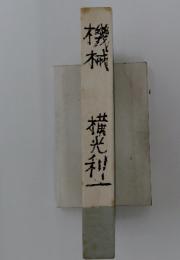 機械
横光利一